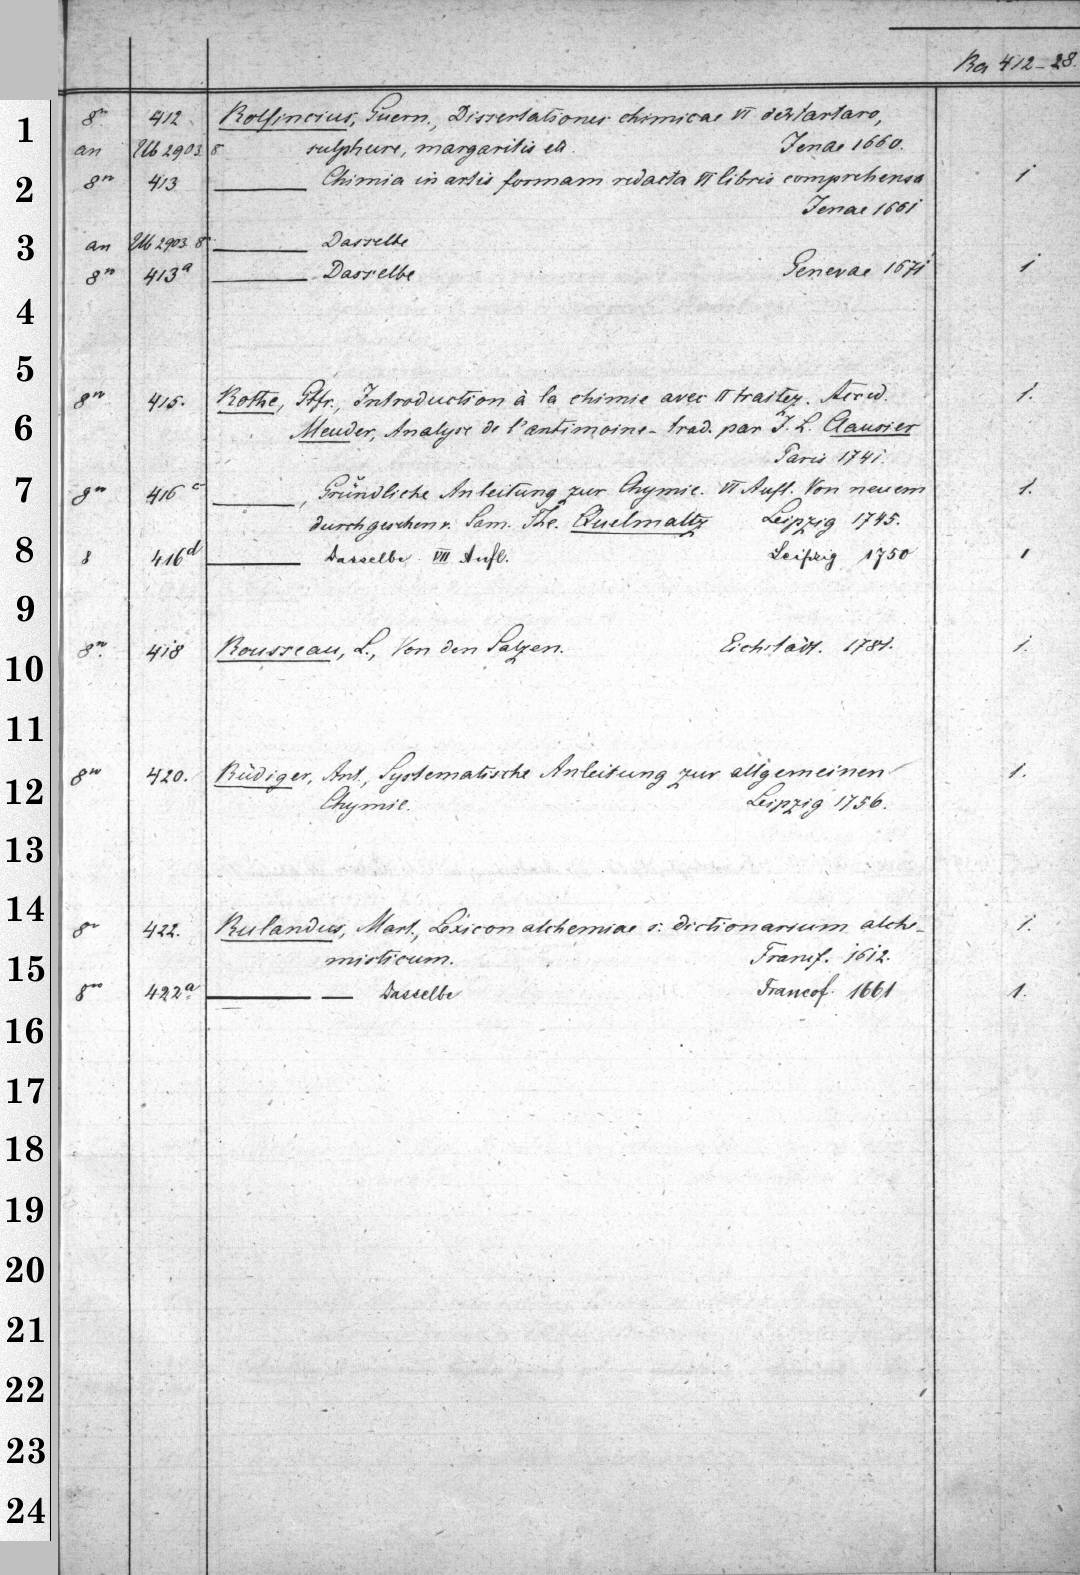 Ra 412-28.
1 8° 412 Rolfincius, Guern., Dissertationes chimicae VI de tartaro,
an Ub 2903 8 sulphure, margaritis etc. Jenae 1660.
2 8° 413 ——— Chimia in artis formam redacta VI libris comprehensa 1
Jenae 1661
3 an Ub 2903 8° ——— Dasselbe
8° 413a ——— Dasselbe Genevae 1671 1
4
5
8° 415. Rothe, Gtfr., Introduction à la chimie avec II traitez. Accd. 1.
6 Meuder, Analyse de l'antimoine - trad. par J. L. Clausier
Paris 1741.
7 8° 416c ———, Gründliche Anleitung zur Chymie. VI Aufl. Von neuem 1.
durchgesehen v. Sam. The. Quelmaltz Leipzig 1745.
8 8 416d ——— Dasselbe VII Aufl. Leipzig 1750 1
9
10 8° 418 Rousseau, L., Von den Salzen. Eichstätt. 1781. 1.
11
8° 420. Rüdiger, Ant., Systematische Anleitung zur allgemeinen 1.
12 Chymie. Leipzig 1756.
13
14 8° 422. Rulandus, Mart., Lexicon alchemiae s. dictionarium alche- 1.
15 misticum. Francf. 1612.
8° 422a ——— — Dasselbe Francof. 1661 1.
16
17
18
19
20
21
22
23
24